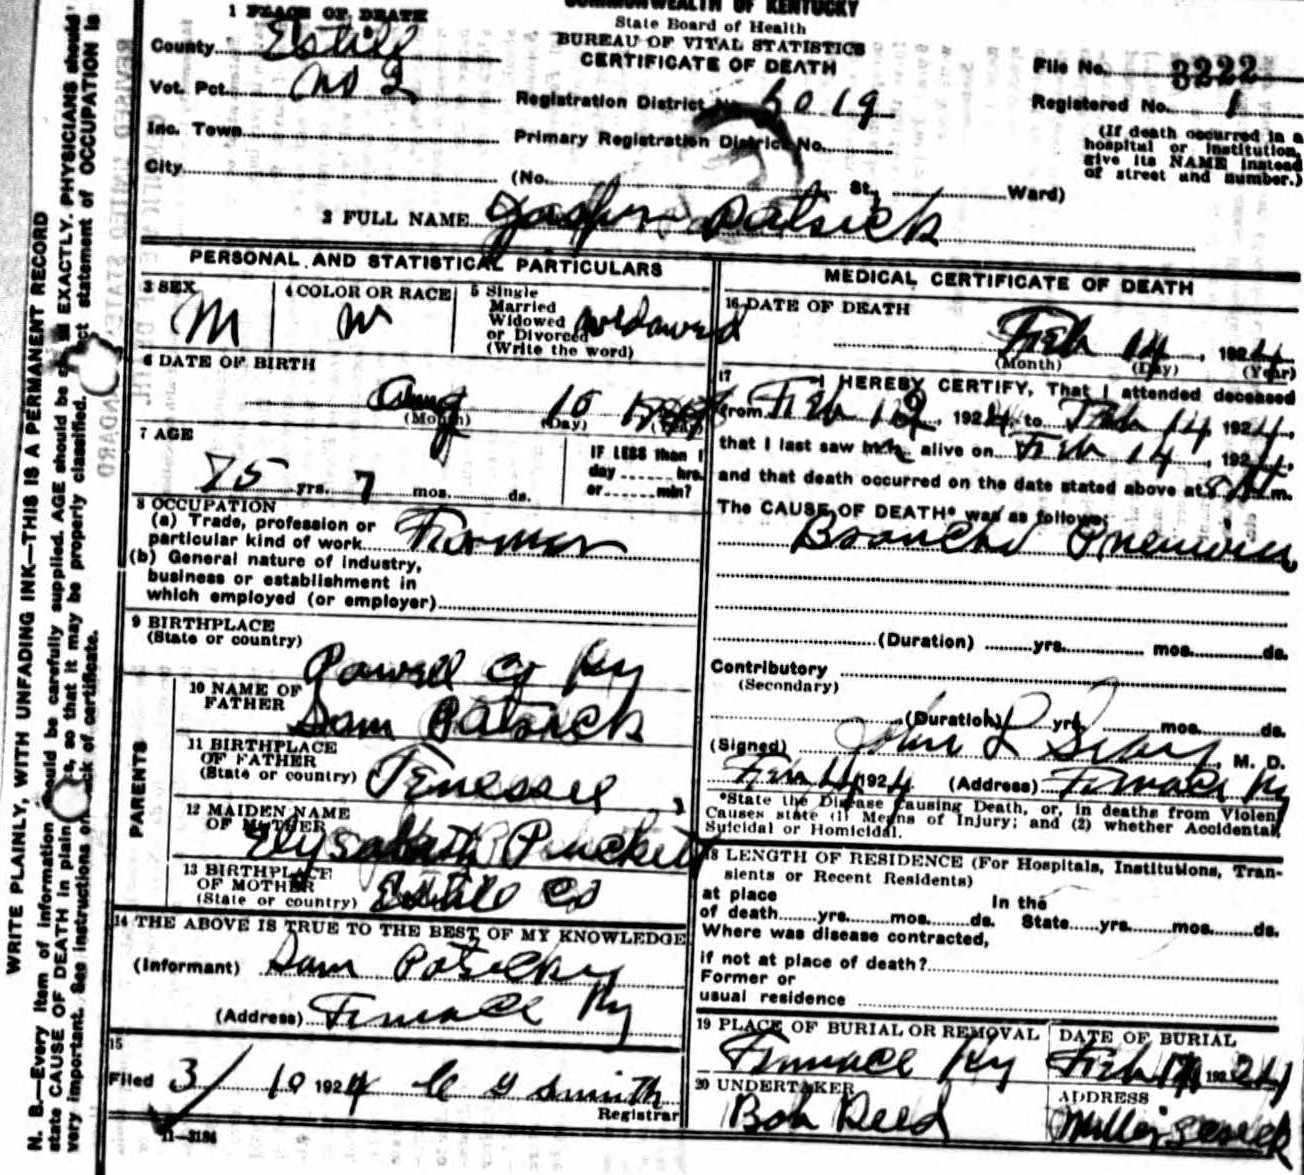 COMMONWEALTH OF KENTUCKY
State Board of Health
BUREAU OF VITAL STATISTICS
CERTIFICATE OF DEATH
1 PLACE OF DEATH
County Estill
Vot. Pct. No 2
Inc. Town
City
Registration District No. 5019
Primary Registration District No.
(No. St., Ward)
File No. 3222
Registered No. 1
(If death occurred in a
hospital or institution,
give its NAME instead
of street and number.)
2 FULL NAME Jasper Patrick
PERSONAL AND STATISTICAL PARTICULARS
3 SEX
M
4 COLOR OR RACE
W
5 Single
Married
Widowed
or Divorced
(Write the word)
widowed
6 DATE OF BIRTH
Aug 10
(Month) (Day) (Year)
7 AGE
75 yrs. 7 mos. ds.
IF LESS than 1
day hrs.
or min?
8 OCCUPATION
(a) Trade, profession or
particular kind of work Farmer
(b) General nature of industry,
business or establishment in
which employed (or employer)
9 BIRTHPLACE
(State or country)
Powell Co Ky
PARENTS
10 NAME OF
FATHER
Sam Patrick
11 BIRTHPLACE
OF FATHER
(State or country)
Tenessee
12 MAIDEN NAME
OF MOTHER
Elysabeth Puckett
13 BIRTHPLACE
OF MOTHER
(State or country)
Estill Co
14 THE ABOVE IS TRUE TO THE BEST OF MY KNOWLEDGE
(Informant) Sam
(Address) Furnace Ky
15
Filed 3/10 1924 C G Smith
Registrar
11-3184
MEDICAL CERTIFICATE OF DEATH
16 DATE OF DEATH
Feb 14, 1924
(Month) (Day) (Year)
17 I HEREBY CERTIFY, That I attended deceased
from Feb 12, 1924, to Feb 14, 1924,
that I last saw him alive on Feb 14, 1924,
and that death occurred on the date stated above at 8 m.
The CAUSE OF DEATH* was as follows:
Broncho
(Duration) yrs. mos. ds.
Contributory
(Secondary)
(Duration) yrs. mos. ds.
(Signed) John L , M. D.
Feb 1924 (Address) Furnace Ky
*State the Disease Causing Death, or, in deaths from Violent
Causes state (1) Means of Injury; and (2) whether Accidental,
Suicidal or Homicidal.
18 LENGTH OF RESIDENCE (For Hospitals, Institutions, Tran-
sients or Recent Residents)
at place In the
of death yrs. mos. ds. State yrs. mos. ds.
Where was disease contracted,
if not at place of death?
Former or
usual residence
19 PLACE OF BURIAL OR REMOVAL
Furnace Ky
DATE OF BURIAL
Feb 1924
20 UNDERTAKER
Bob Reed
ADDRESS
WRITE PLAINLY, WITH UNFADING INK—THIS IS A PERMANENT RECORD
N. B.—Every item of information should be carefully supplied. AGE should be EXACTLY. PHYSICIANS should
state CAUSE OF DEATH in plain so that it may be properly classified. statement of OCCUPATION is
very important. See instructions on back of certificate.